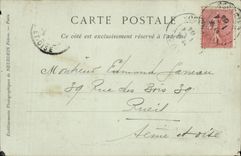 CARTE POSTALE
Ce côté est exclusivement réservé à l'adresse
Établissements Photographiques de NEURDEIN Frères. — Paris
Monsieur Edmond
39 Rue des Bois 39
Rueil
Seine et oise